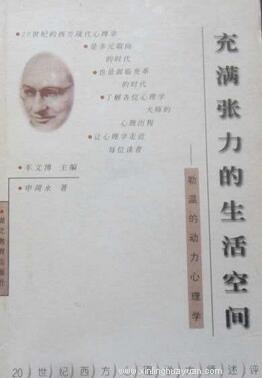 20世纪的西方现代心理学
是多元取向
的时代
也是面临变革
的时代
了解各位心理学
大师的
心路历程
让心理学走近
每位读者
车文博 主编
申荷永 著
充满张力的生活空间
勒温的动力心理学
湖北教育出版社
20世纪西方
述评
www.xinlinghuayuan.com